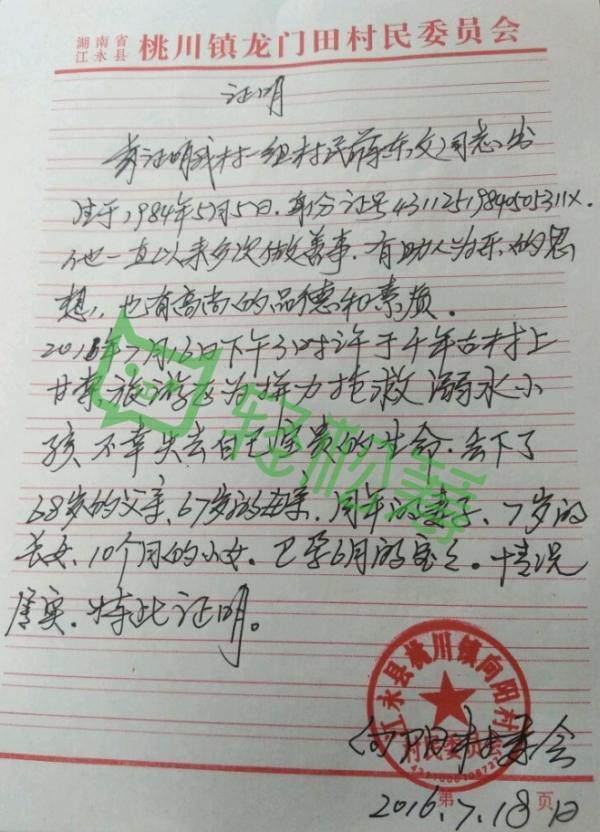 湖南省
江永县 桃川镇龙门田村民委员会
证明
兹证明我村一组村民蒋东文同志,出
生于1984年5月5日.身份证号43112519840505311X.
他一直以来多次做善事.有助人为乐的思
想,也有高尚的品德和素质。
2016年7月16日下午3时许于千年古村上
甘棠旅游区为拼力抢救溺水小
孩不幸失去自己宝贵的生命.丢下了
68岁的父亲、67岁的母亲.同年的妻子、7岁的
长女、10个月的小女.已孕6月的宝宝。情况
属实.特此证明。
轻松筹
江永县桃川镇向阳村
村民委员会
向阳村委会
第 页
2016.7.18日